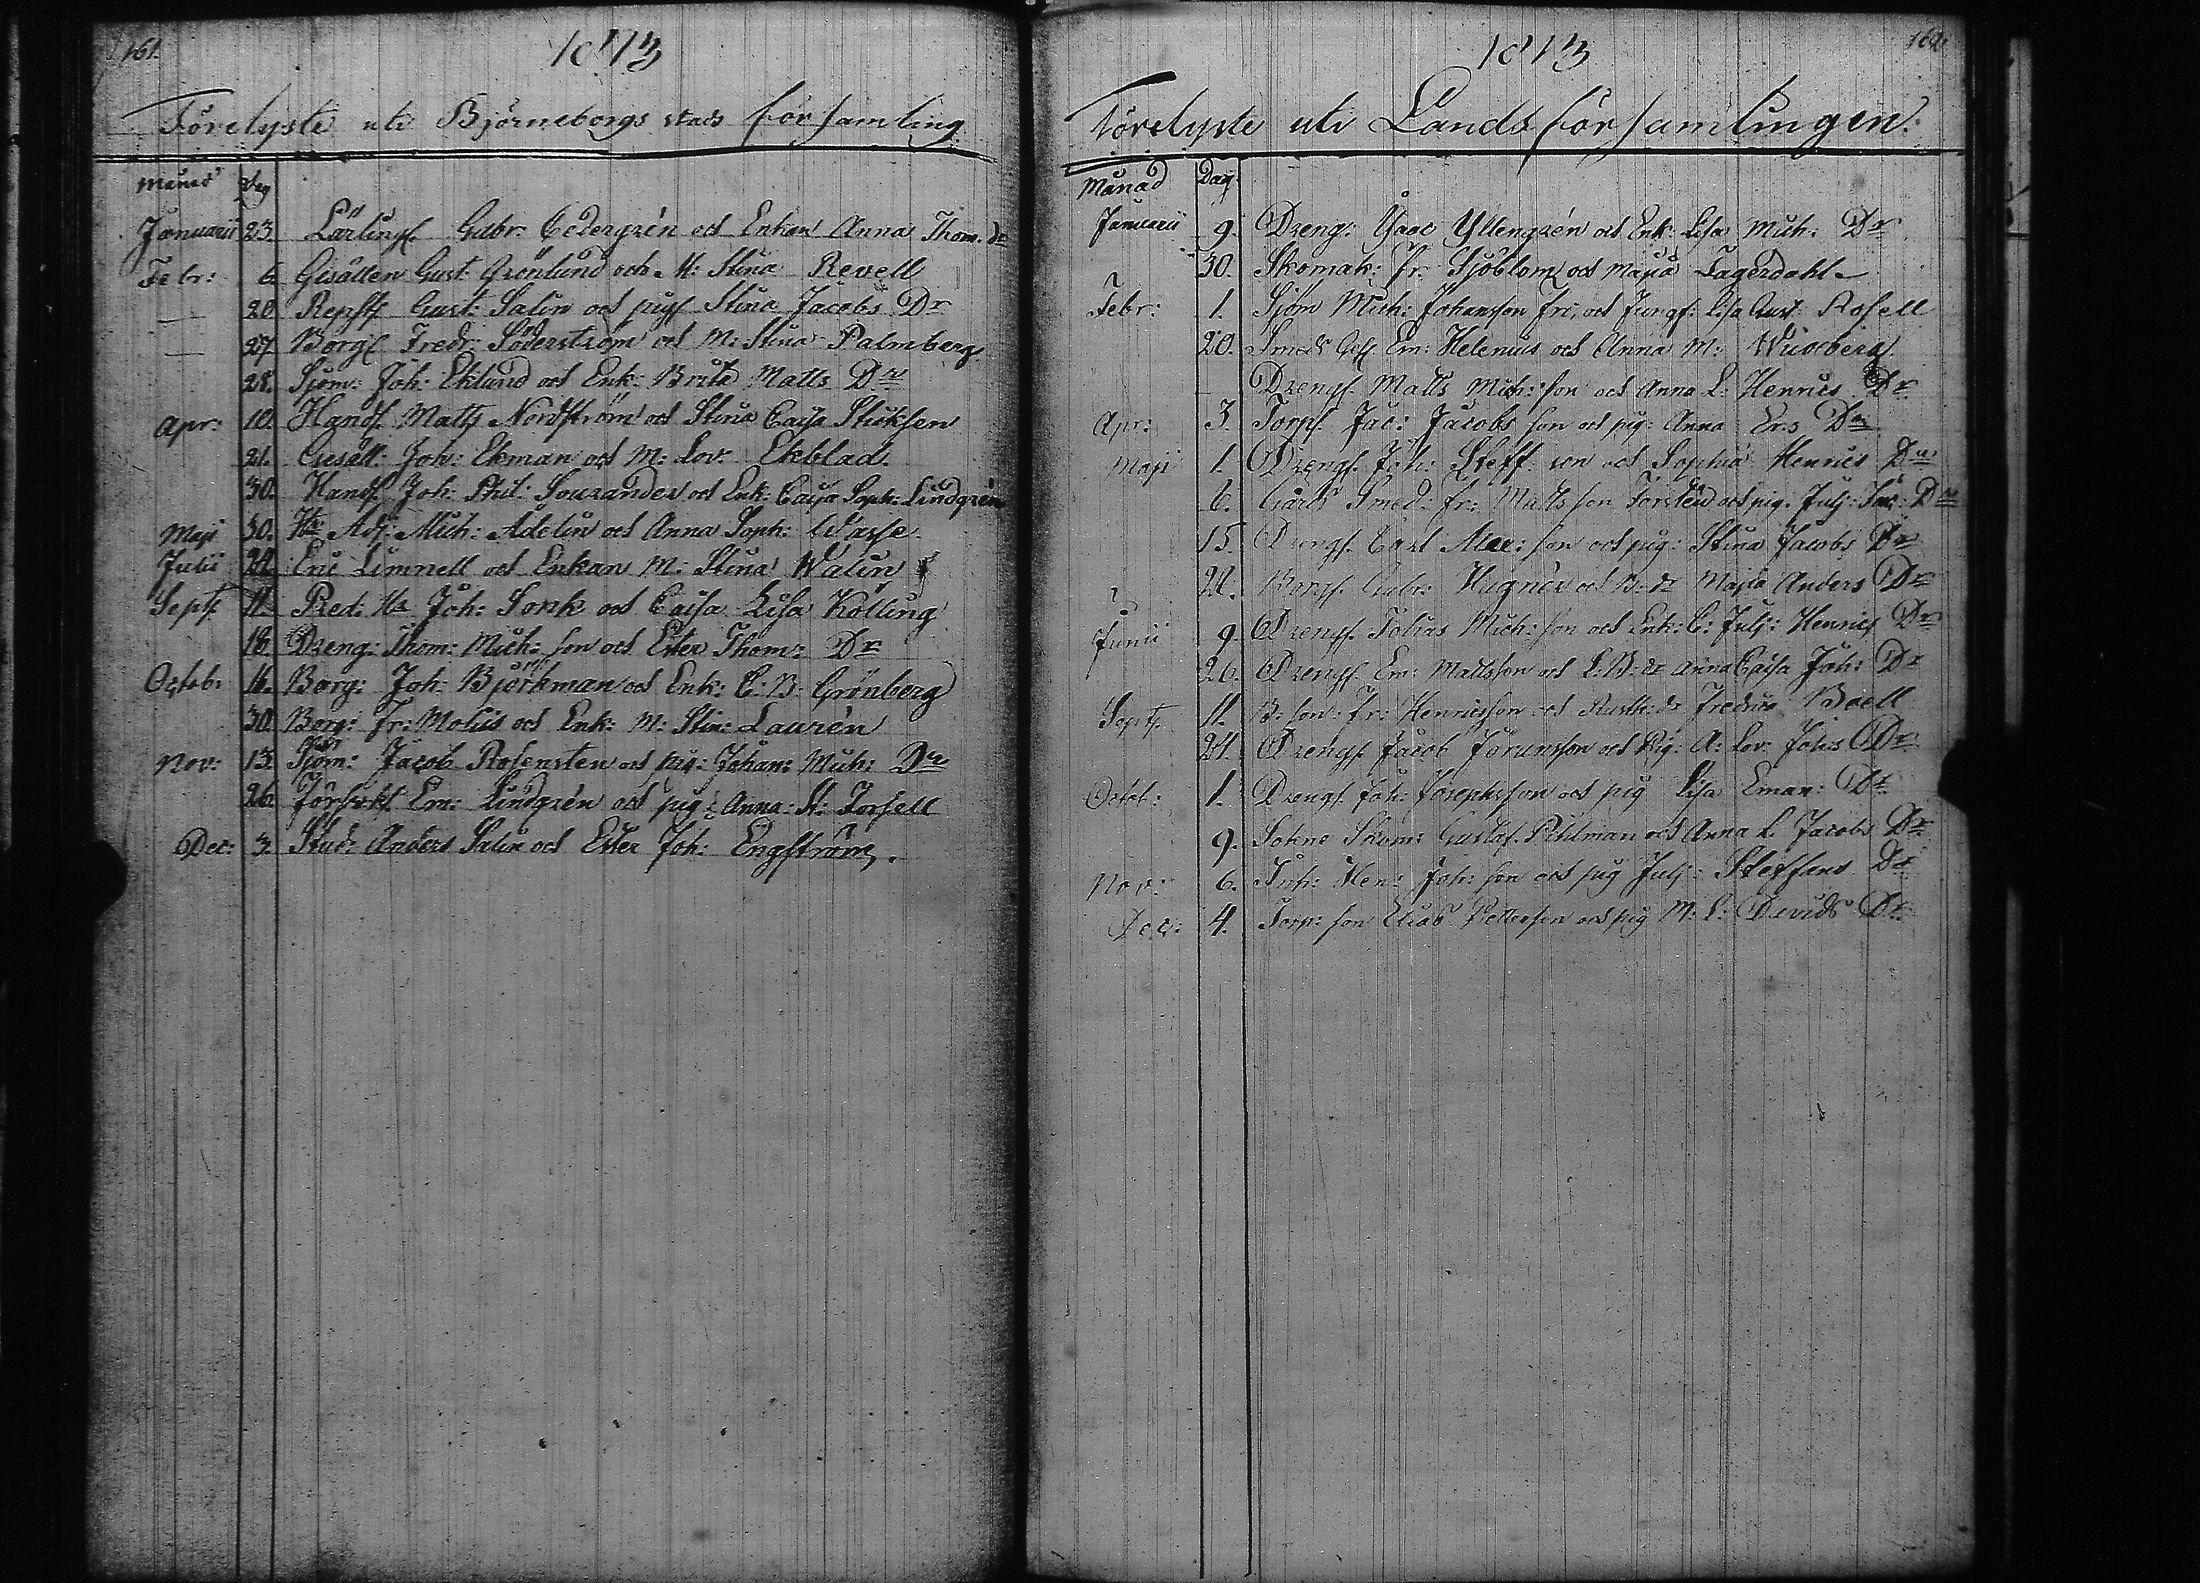 161.
1813
Förelyste uti Björneborgs stads församling
Månad Dag
Januarii 23. Lärlingf. Gabr. Cedergrén och Enkan Anna Thom. Dr
Febr: 6. Gesällen Gust: Grönlund och M: Stina Revell
20. Gust: Salin och pigf Stina Jacobs Dr
27 Borgf Fredr Söderström och M: Stina Palmberg
28. Sjöm: Joh: Eklund och Enk: Brita Matts Dr
Apr: 10. Handf. Matts Nordström och Stina Caisa
21. Gesäll: Joh: Ekman och M: Lov: Ekblad.
30. Handf. Joh: Phil: Sourander och Enk: Caisa Soph: Lindgrén
Maji 30. Hr Adj: Mich: Adelin och Anna Soph:
Julii 29. Eric Limnell och Enkan M: Stina Walin
Sept. 11. Red: Hr Joh: Sonk och Caisa Lisa Kölling
18. Dreng: Thom: Mich: son och Ester Thom: Dr
Octob: 16. Borg: Joh: Björkman och Enk: C: B: Grönberg
30. Borg: Fr: Molius och Enk: M: Stin: Laurén
Nov: 13. Sjöm: Jacob Rosensten och pig: Johan: Mich: Dr
26. Em: Lindgrén och pig: Anna: St: Torsell
Dec: 3. Stud: Anders Salin och Ester Joh: Engström.
162.
1813
Förelyste uti Landsförsamlingen.
Månad Dag.
Januarii 9. Dreng: Isaac Yllengrén och Enk: Lisa Mich: Dr
30. Skomak: Fr: Sjöblom och Maja Lagerdahl
Febr: 1. Sjöm Mich: Johansson fri, och Jungf: Lisa Gust: Rosell
20. Smeds Gesf. Em: Helenius och Anna M: Widberg.
Drengf. Matts Mich: son och Anna L: Henrics Dr
Apr: 3. Torpf. Jac: Jacobs son och pig: Anna Er:s Dr
Maji 1. Drengf. Joh: Steff: son och Sophia Henrics Dr
6. Gårds Smed: Fr: Matts son och pig: Julj: Jac: Dr
15. Drengf. Carl Alex: son och pig: Stina Jacobs Dr
22. Borgf. Gabr: Hugnér och B: dr Maja Anders Dr
Junii 9. Drengf. Tobias Mich: son och Enk: C: Julj: Henrics Dr
20. Drengf. Em: Mattsson och L: B: dr Anna Caisa Joh: Dr
Sept. 11. B: son: Fr: Henricsson och Rusth: dr Fredrica Boell
24. Drengf. Jacob och Pig: A: Lov: Joh:s Dr
Octob: 1. Drengf. Joh: Josephsson och pig Lisa Eman: Dr
9. Sohne Skom: Gustaf Pihlman och Anna L. Jacobs Dr
Nov: 6. Inh: Hen: Joh: son och pig Julj: Steffans Dr
Dec: 4. Torp: son Elias Pettersson och pig M: L: Davids Dr